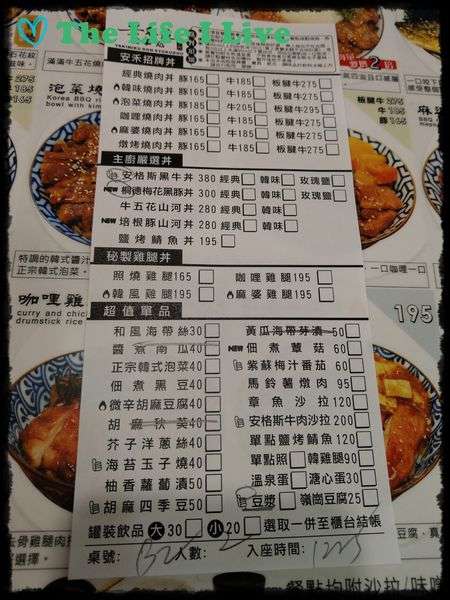 The Life I Live
安禾招牌丼
經典燒肉丼 豚165 牛185 板腱牛275
韓味燒肉丼 豚165 牛185 板腱牛275
泡菜燒肉丼 豚185 牛205 板腱牛295
咖哩燒肉丼 豚165 牛185 板腱牛275
麻婆燒肉丼 豚165 牛185 板腱牛275
燉煮燒肉丼 豚165 牛185 板腱牛275
主廚嚴選丼
安格斯黑牛丼 380 經典 韓味 玫瑰鹽
NEW 桐德梅花黑豚丼 300 經典 韓味 玫瑰鹽
牛五花山河丼 280 經典 韓味
NEW 培根豚山河丼 280 經典 韓味
鹽烤鯖魚丼 195
秘製雞腿丼
照燒雞腿165 咖哩雞腿195
韓風雞腿195 麻婆雞腿195
超值單品
和風海帶絲30 黃瓜海帶芽漬60
醬煮南瓜40 NEW 佃煮蕈菇60
正宗韓式泡菜40 紫蘇梅汁番茄60
佃煮黑豆40 馬鈴薯燉肉95
微辛胡麻豆腐40 章魚沙拉120
胡麻秋葵40 安格斯牛肉沙拉200
芥子洋蔥絲40 單點鹽烤鯖魚120
海苔玉子燒40 單點照 韓雞腿90
柚香蘿蔔漬50 溫泉蛋 溏心蛋30
胡麻四季豆50 豆漿 嶺崗豆腐25
罐裝飲品 大30 小20 選取一併至櫃台結帳
桌號: B2 人數: 2 入座時間: 1225
泡菜燒
Korea BBQ
bowl with kim
特調的韓式醬汁
正宗韓式泡菜
咖哩雞
curry and chic
drumstick rice
195
一口咖哩一口
去骨雞腿肉
選擇。
餐點均附沙拉/味噌